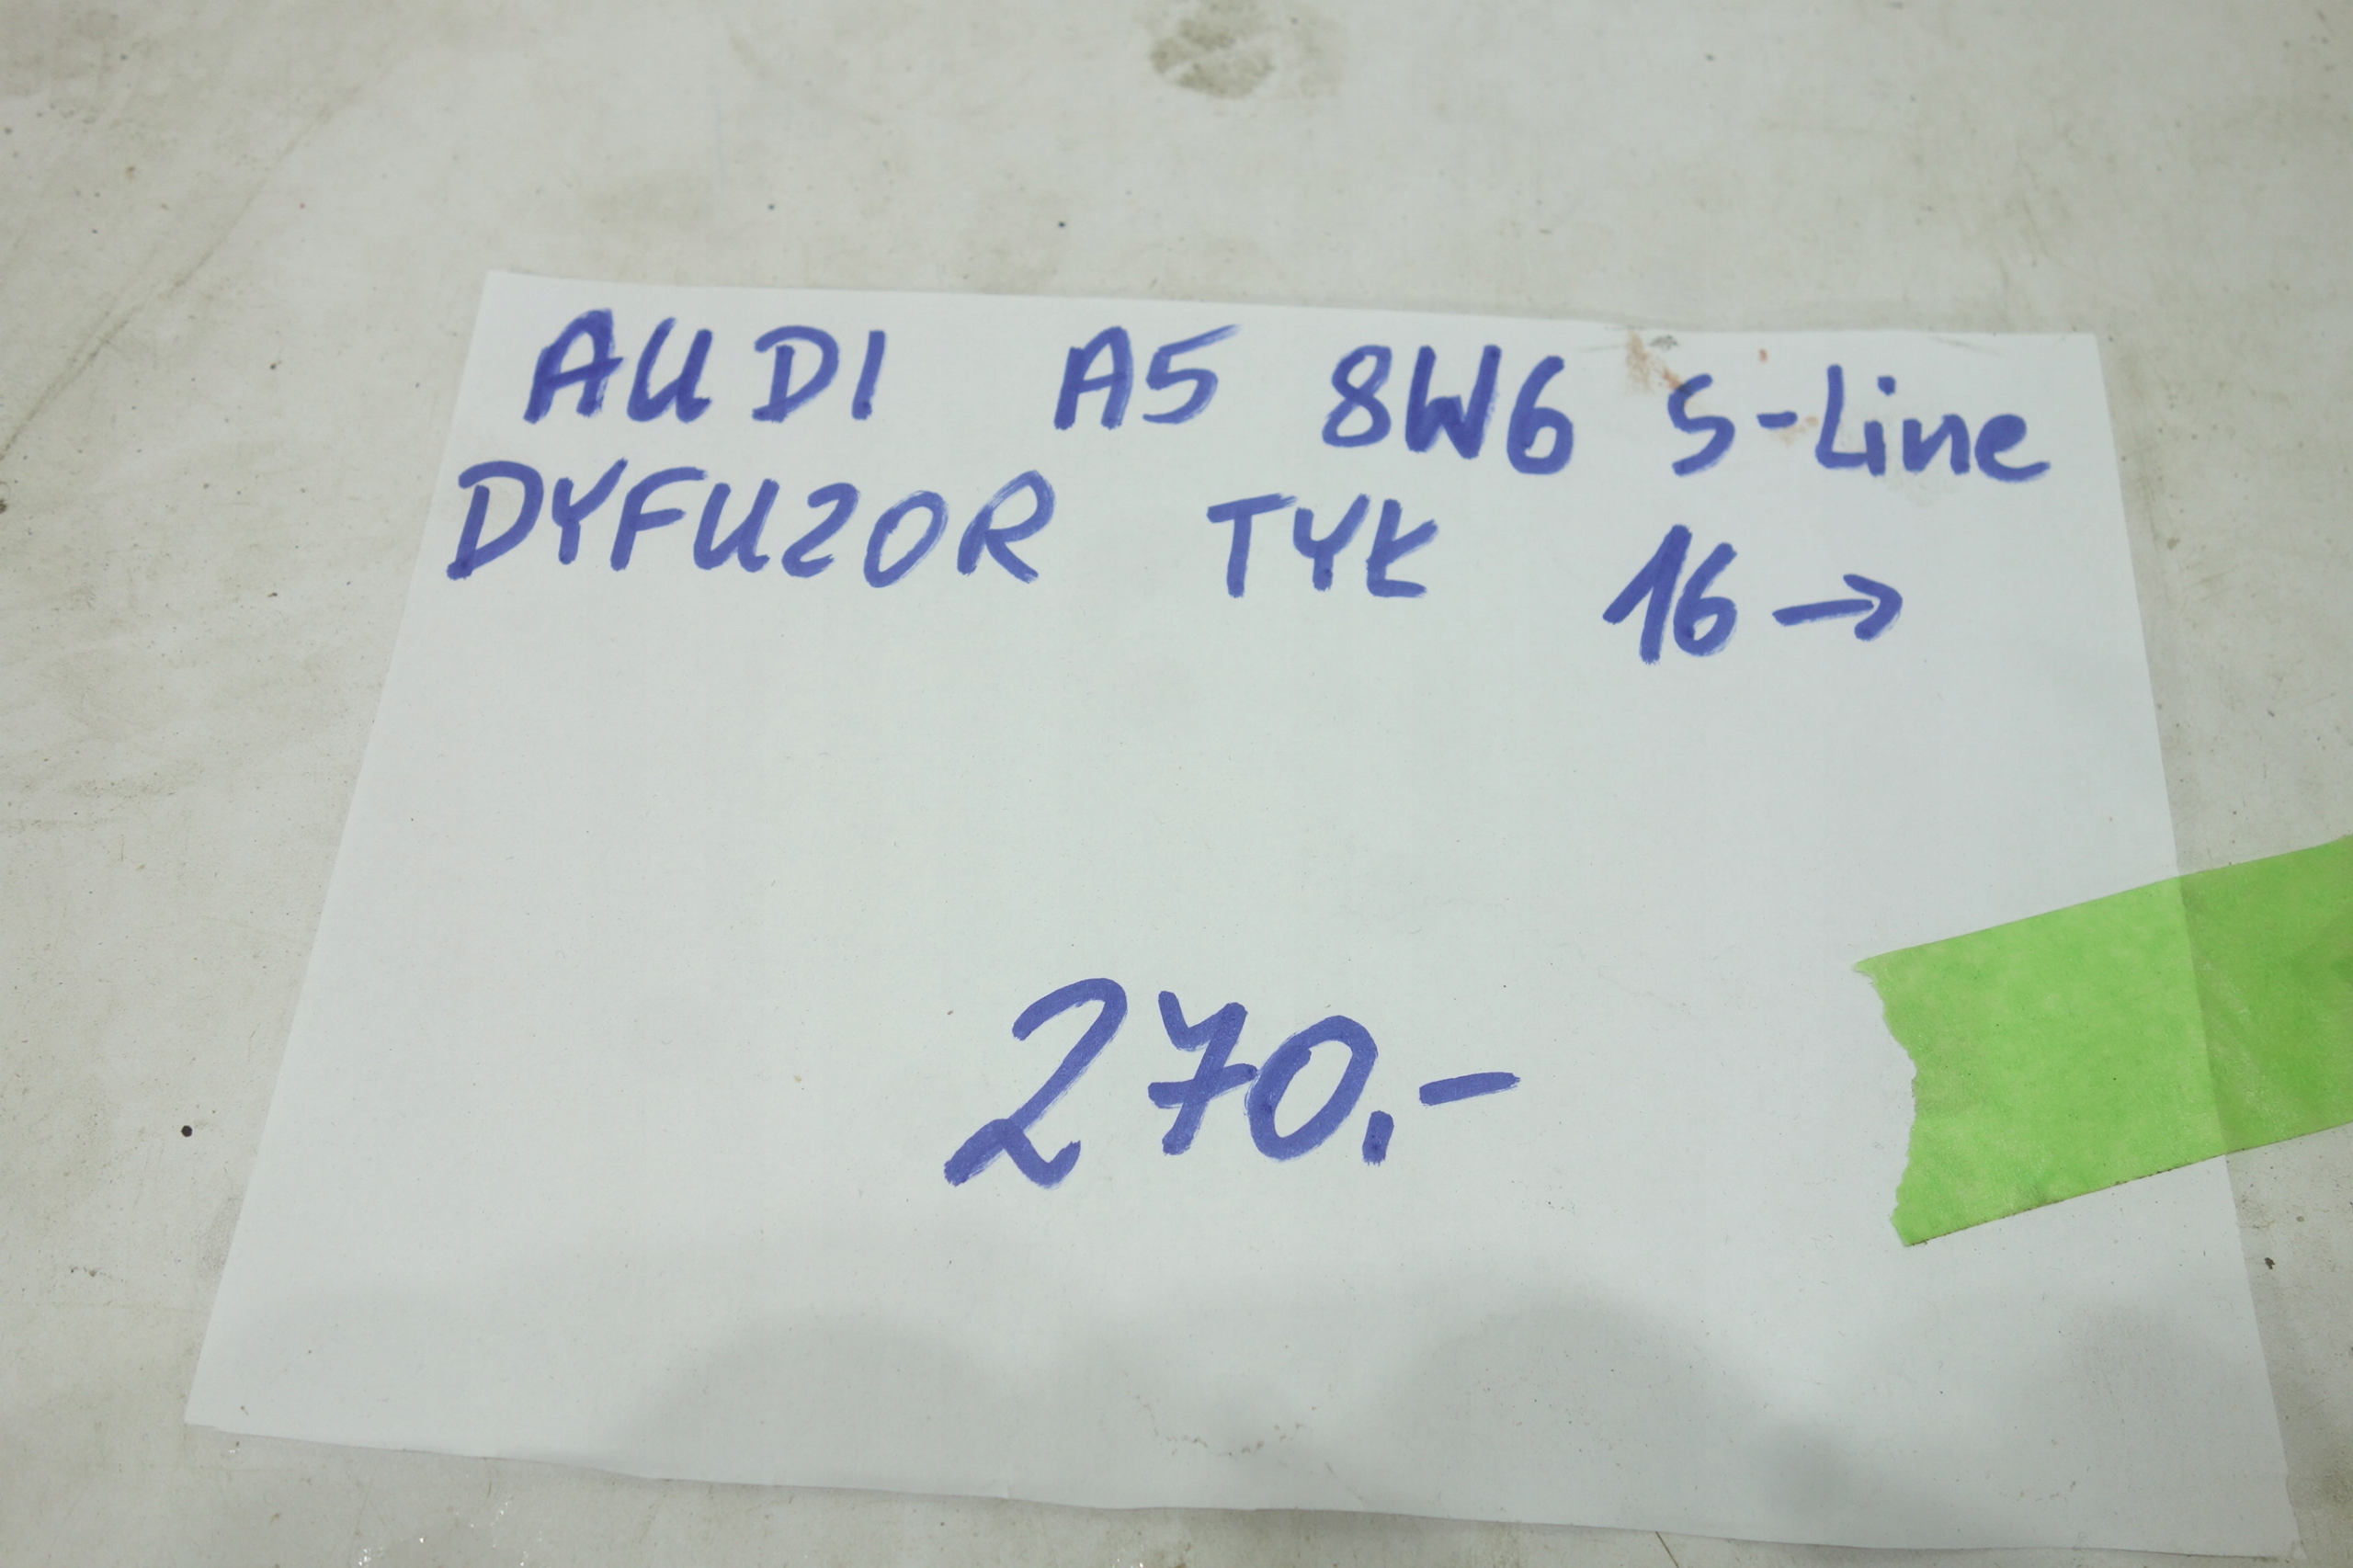 AUDI A5 8W6 S-Line
DYFUZOR TYŁ 16 →
270.-